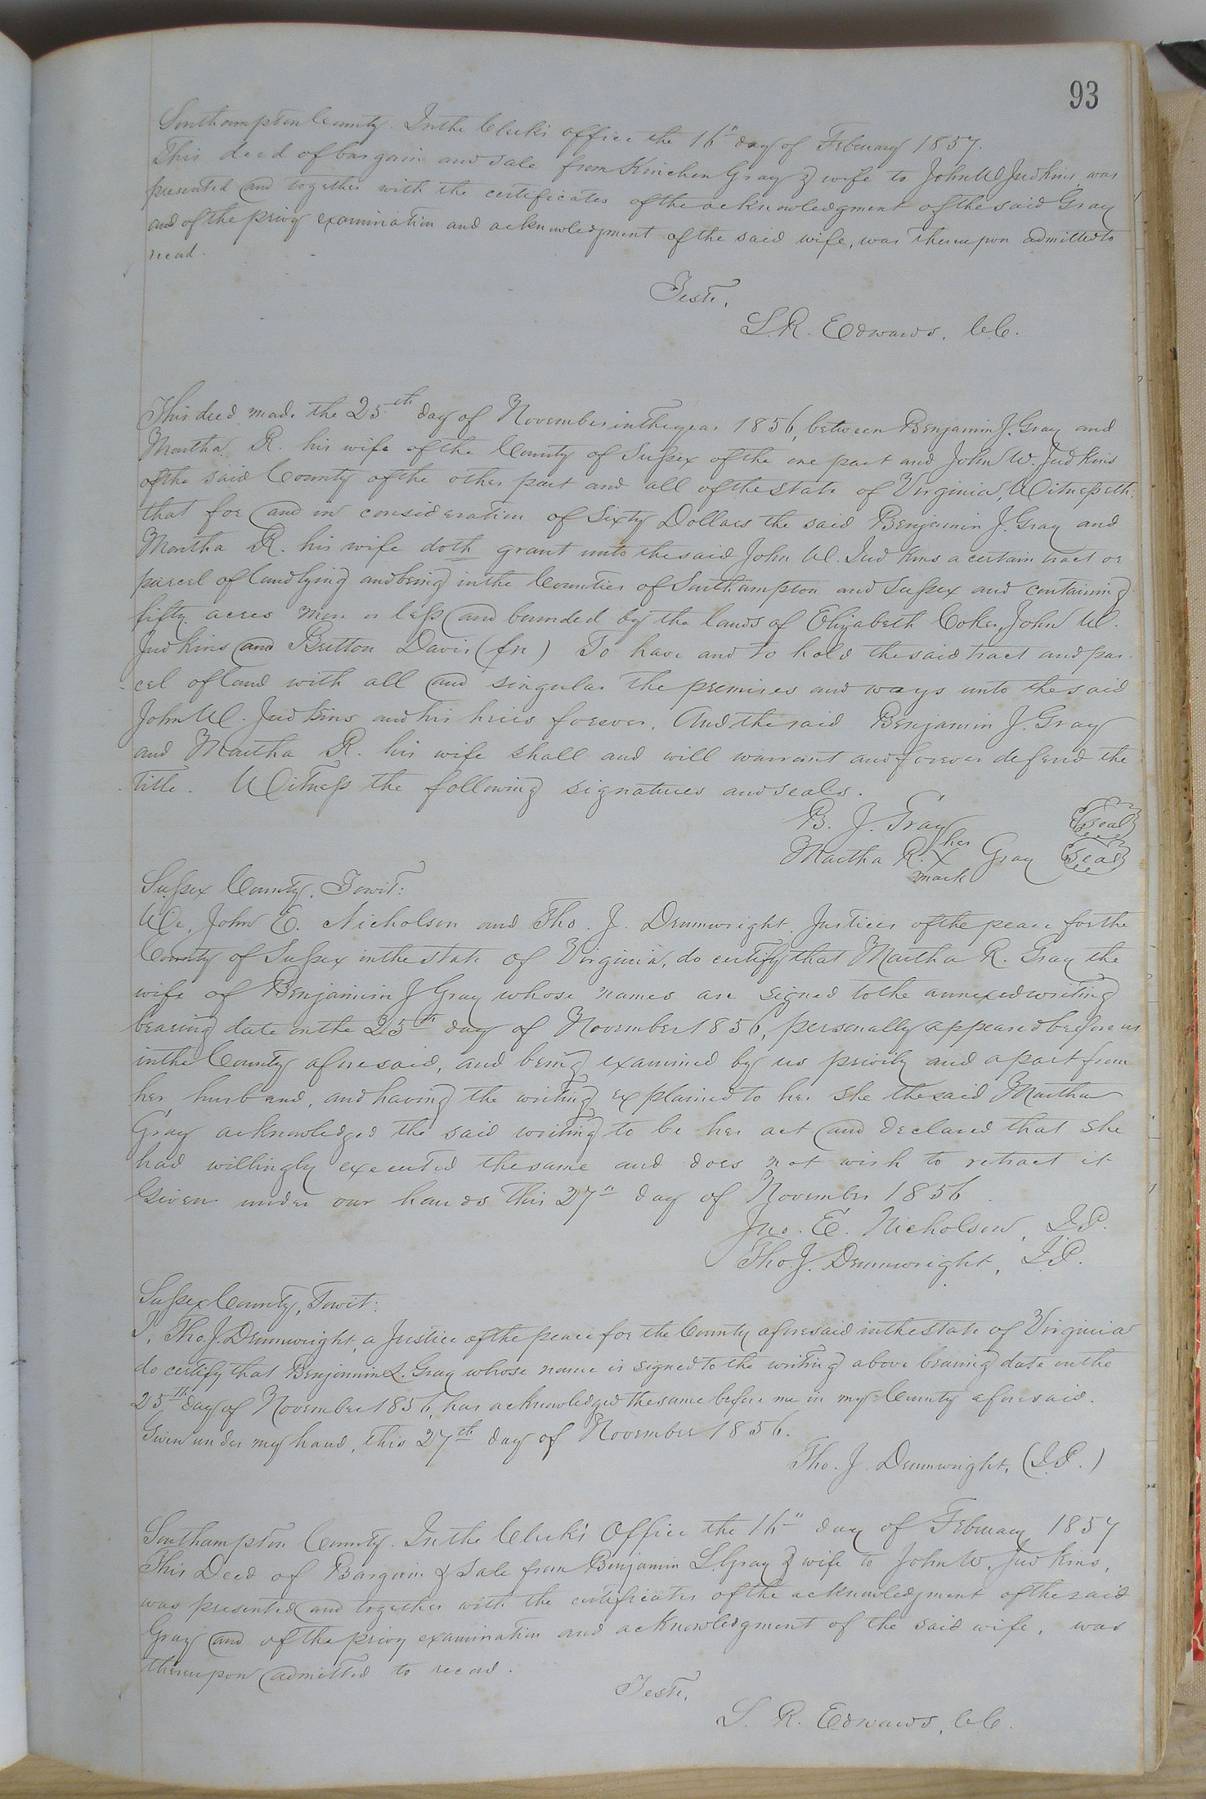 93
Southampton County. In the Clerk's office the 16th day of February 1857.
This deed of bargain and sale from Kinchen Gray & wife to John W Judkins, was
presented and together with the certificates of the acknowledgment of the said Gray
and of the privy examination and acknowledgment of the said wife, was thereupon admitted to
record.
Teste,
L. R. Edwards, C.C.
This deed made the 25th day of November in the year 1856, between Benjamin J. Gray and
Martha R. his wife of the County of Sussex of the one part and John W. Judkins
of the said County of the other part and all of the state of Virginia, Witnesseth:
that for and in consideration of Sixty Dollars the said Benjamin J. Gray and
Martha R. his wife doth grant unto the said John W. Judkins a certain tract or
parcel of land lying and being in the Counties of Southampton and Sussex and containing
fifty acres more or less and bounded by the lands of Elizabeth Coker, John W.
Judkins and Britton Davis (fn) To have and to hold the said tract and par-
cel of land with all and singular the premises and ways unto the said
John W. Judkins and his heirs forever. And the said Benjamin J. Gray
and Martha R. his wife shall and will warrant and forever defend the
title. Witness the following signatures and seals.
B. J. Gray (seal)
her
Martha R. X Gray (seal)
mark
Sussex County, Towit:
We, John E. Nicholson and Tho. J. Drumwright, Justices of the peace for the
County of Sussex in the state of Virginia, do certify that Martha R. Gray the
wife of Benjamin J Gray whose names are signed to the annexed writing
bearing date on the 25th day of November 1856, personally appeared before us
in the County aforesaid, and being examined by us privily and apart from
her husband, and having the writing explained to her she the said Martha
Gray acknowledged the said writing to be her act and declared that she
had willingly executed the same and does not wish to retract it
Given under our hands this 27th day of November 1856
Jno. E. Nicholson, J.P.
Tho. J. Drumwright, J.P.
Sussex County, Towit:
I, Tho. J. Drumwright, a Justice of the peace for the County aforesaid in the state of Virginia
do certify that Benjamin L. Gray whose name is signed to the writing above bearing date on the
25th day of November 1856, has acknowledged the same before me in my County aforesaid.
Given under my hand, this 27th day of November 1856.
Tho. J. Drumwright, (J.P.)
Southampton County. In the Clerk's Office the 16th day of February 1857
This Deed of Bargain & Sale from Benjamin L. Gray & wife to John W. Judkins,
was presented and together with the certificates of the acknowledgment of the said
Gray and of the privy examination and acknowledgment of the said wife, was
thereupon admitted to record.
Teste,
L. R. Edwards, C.C.